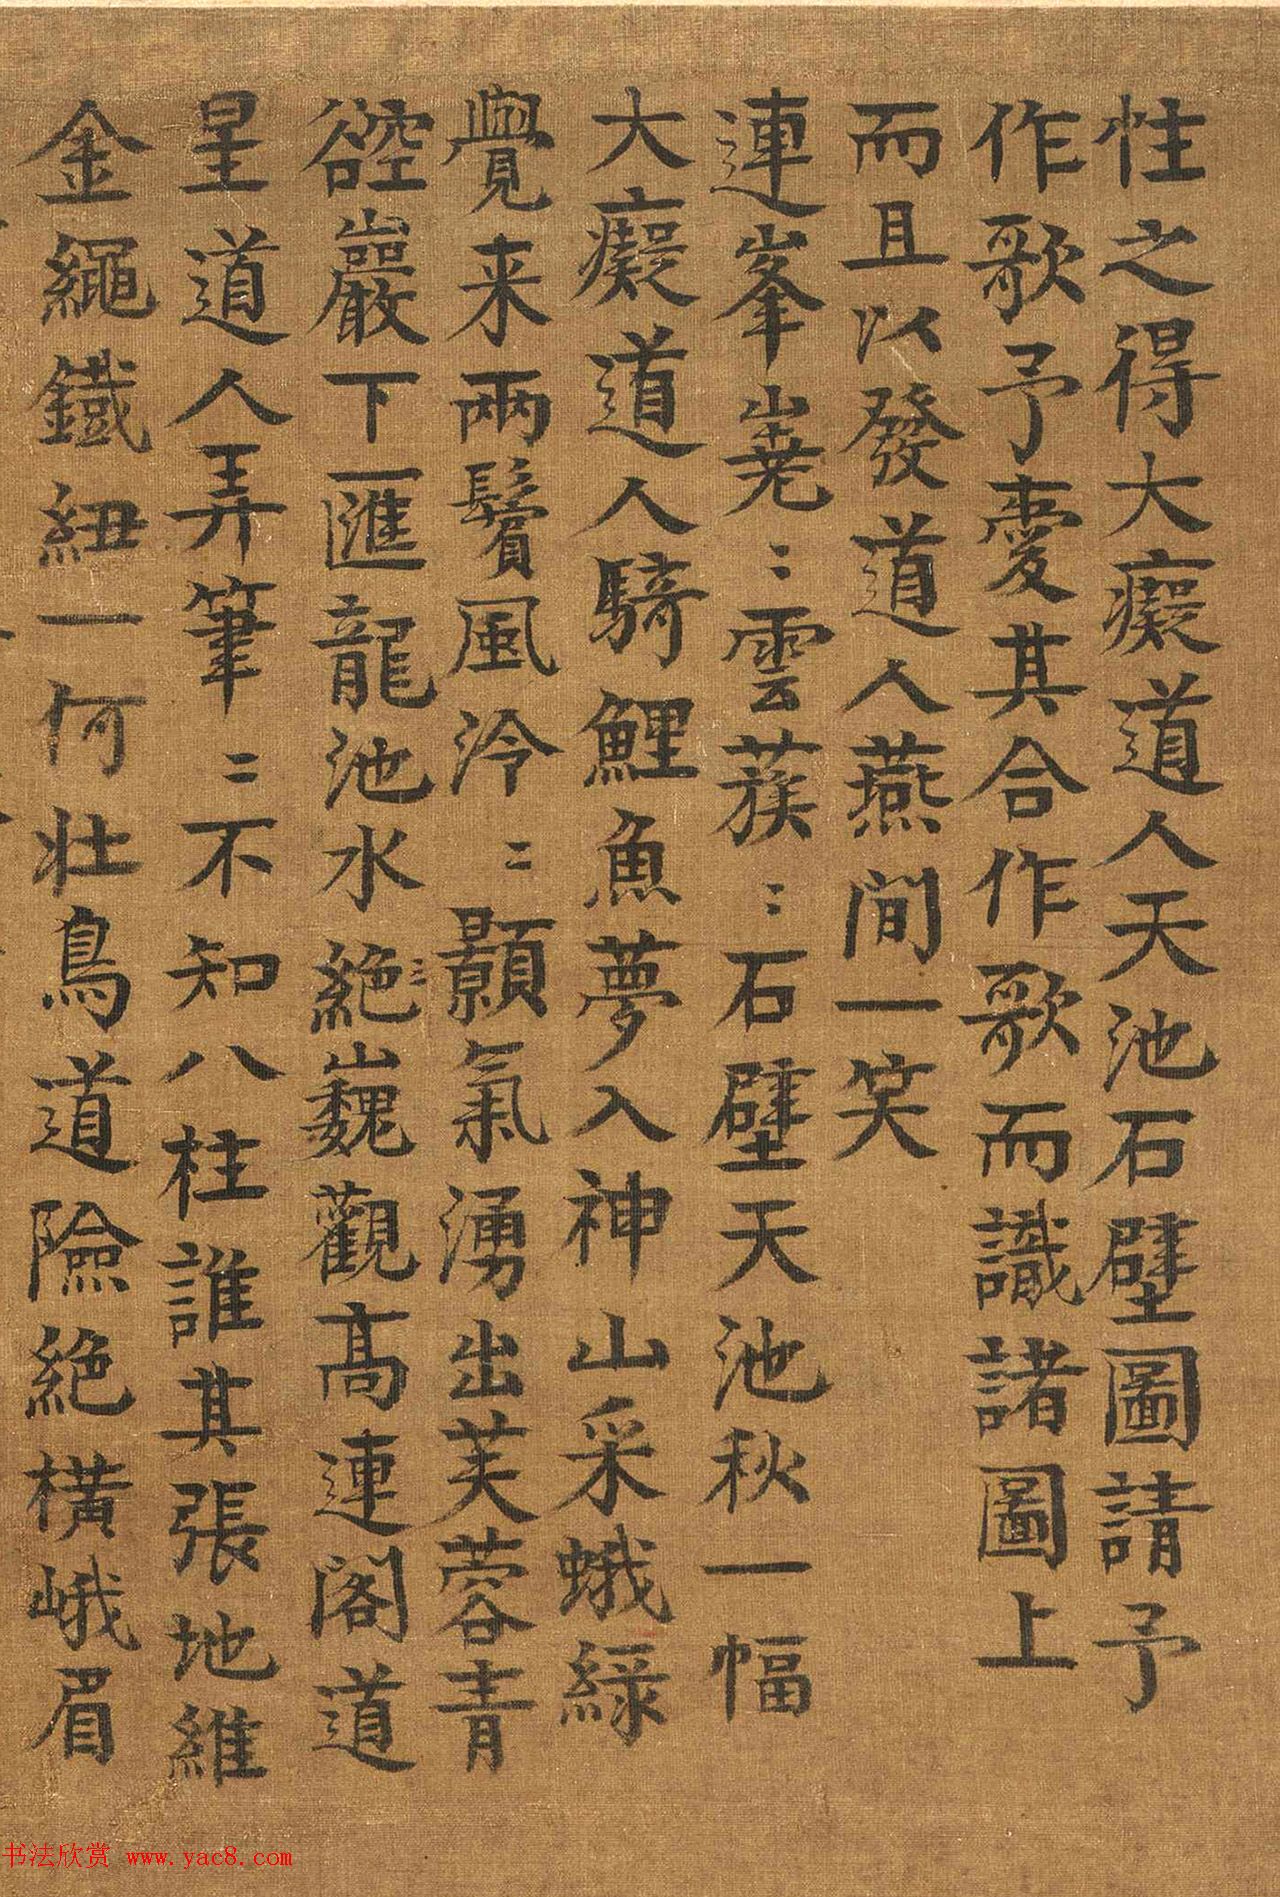 性之得大癡道人天池石壁圖請予
作歌予愛其合作歌而識諸圖上
而且以發道人燕間一笑
連峯嶤〻雲蔟〻石壁天池秋一幅
大癡道人騎鯉魚夢入神山采蛾綠
覺来兩鬢風泠〻顥氣湧出芙蓉青
巖下一匯龍池水絕〻巍觀高連閣道
星道人弄筆〻不知八柱誰其張地維
金繩鐵紐一何壯鳥道險絕橫峨眉
书法欣赏 www.yac8.com